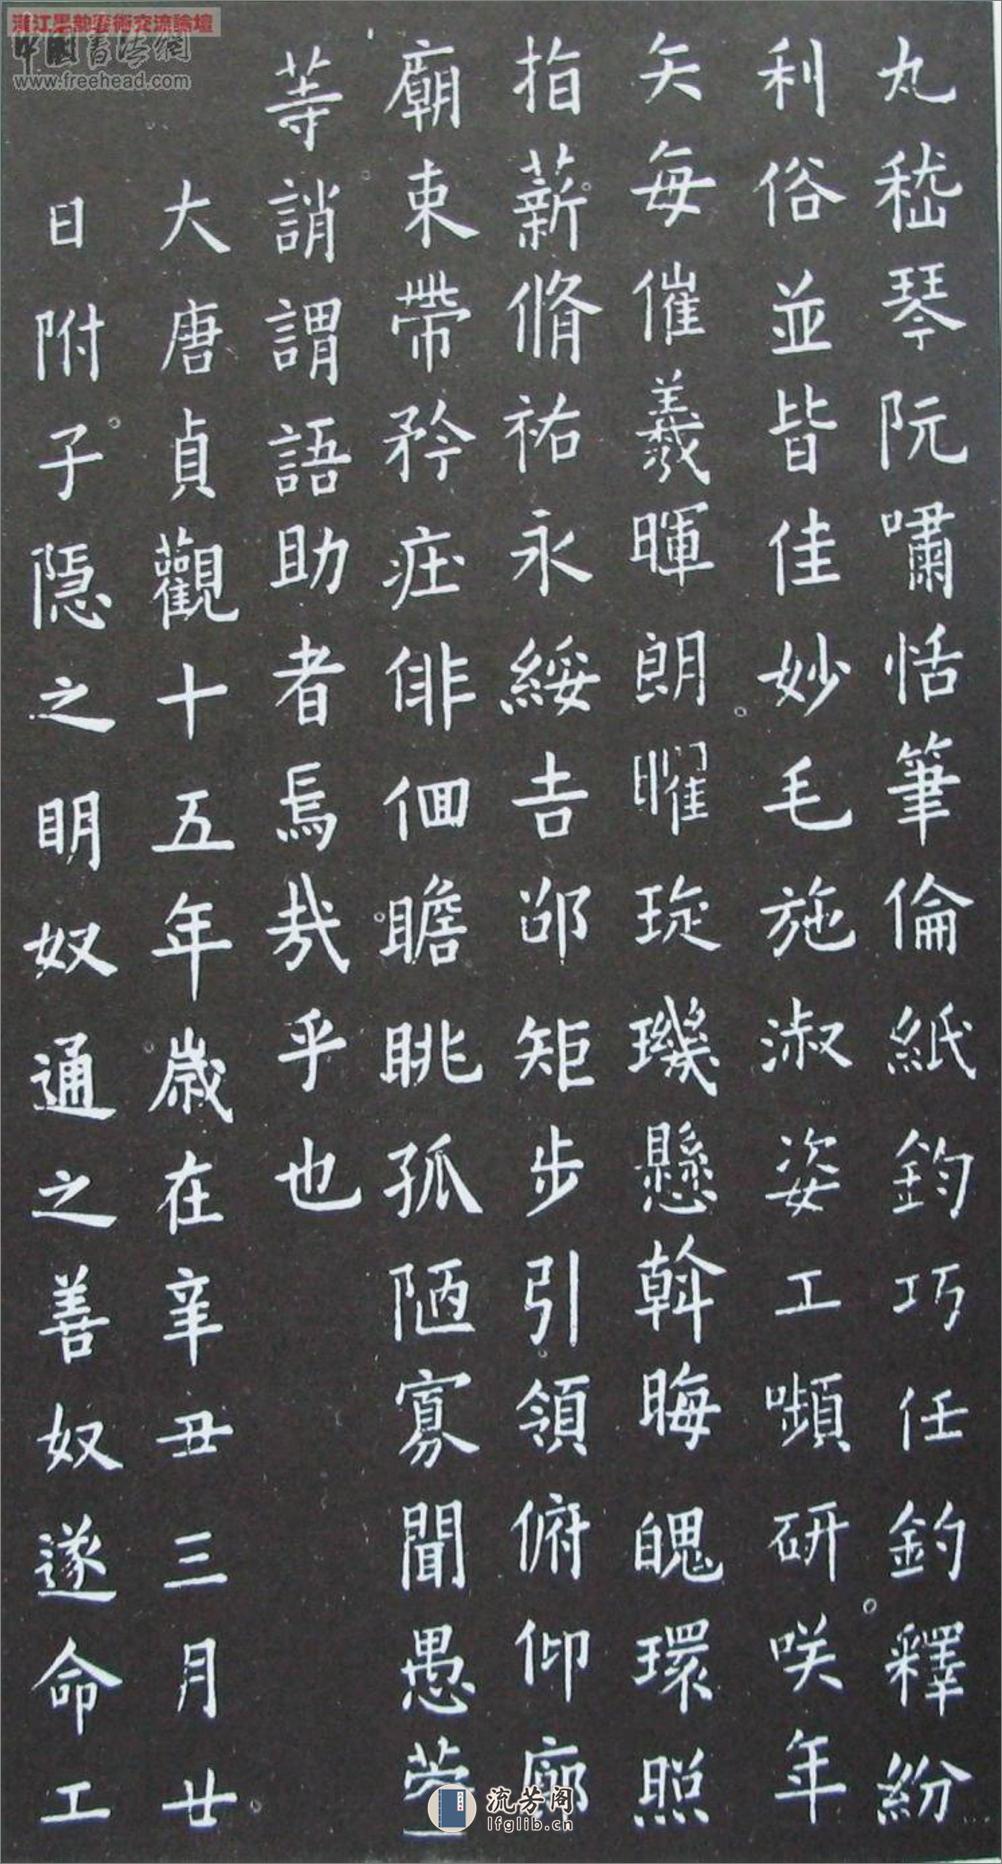 丸嵇琴阮嘯恬筆倫紙鈞巧任釣釋紛
利俗並皆佳妙毛施淑姿工嚬研咲年
矢每催羲暉朗曜琁璣懸斡晦魄環照
指薪脩祐永綏吉邵矩步引領俯仰廊
廟束帶矜莊俳佪瞻眺孤陋寡聞愚蒙
等誚謂語助者焉哉乎也
大唐貞觀十五年歲在辛丑三月廿
日附子隱之明奴通之善奴遂命工
漢江墨韵藝術交流論壇
中國書法網
www.freehead.com
流芳阁
lfglib.cn